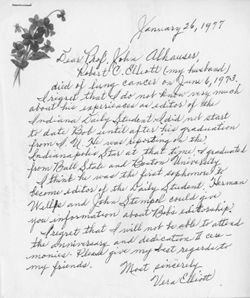 January 26, 1977
Dear Prof. John Ahlhauser
Robert C. Elliott (my husband)
died of lung cancer on June 6, 1973.
I regret that I do not know very much
about his experiences as editor of the
Indiana Daily Student. I did not start
to date Bob until after his graduation
from I. U. He was reporting on the
Indianapolis Star at that time. I graduated
from Ball State and Boston University.
I think he was the first sophomore to
become editor of the Daily Student. Herman
Wells and John Stempel could give
you information about Bobs editorship.
I regret that I will not be able to attend
the anniversary and dedication cere-
monies. Please give my best regards to
my friends.
Most sincerely
Vera Elliott